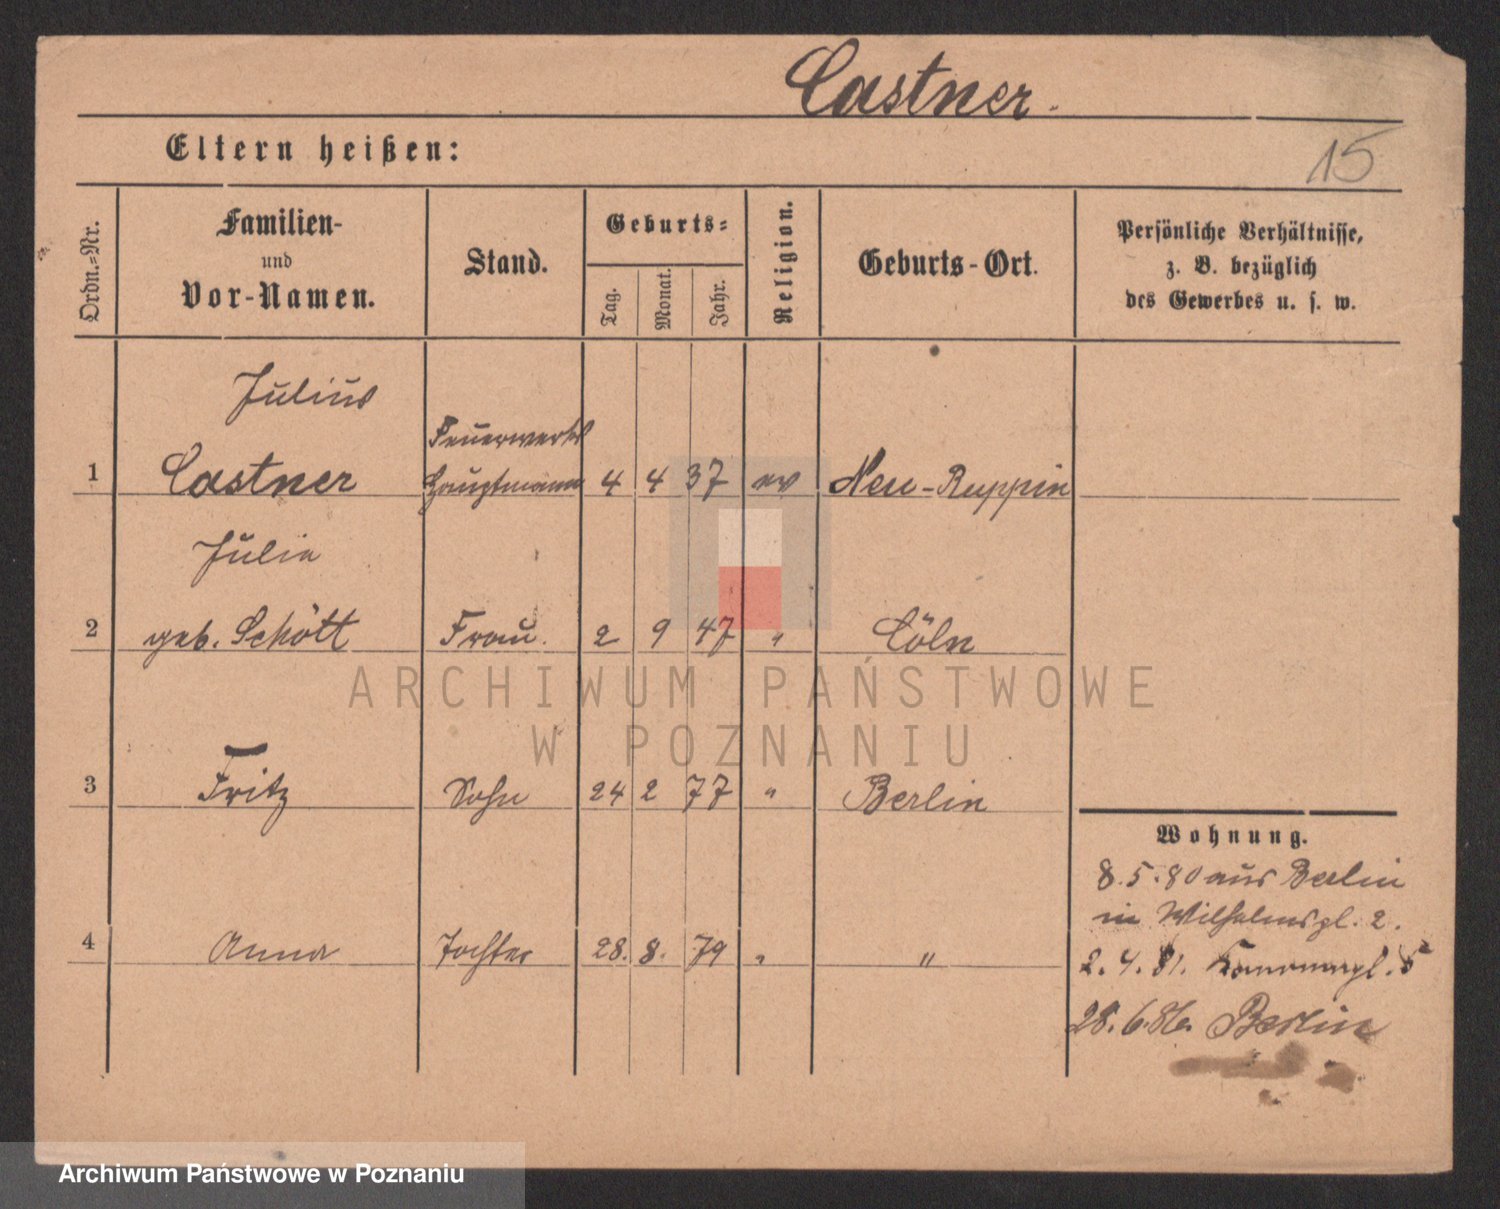 Castner.
15
Eltern heißen:
Ordn.-Nr.
Familien-
und
Vor-Namen.
Stand.
Geburts-
Tag.
Monat.
Jahr.
Religion.
Geburts-Ort.
Persönliche Verhältnisse,
z. B. bezüglich
des Gewerbes u. s. w.
Julius
Feuerwerks
1 Castner Hauptmann 4 4 37 ev Neu-Ruppin
Julie
2 geb. Schött Frau. 2 9 47 " Cöln
3 Fritz Sohn 24 2 77 " Berlin
4 Anna Tochter 28. 8. 79 " "
Wohnung.
8.5.80 aus Berlin
in Wilhelmspl. 2.
2.4.81. 5
28.6.86. Berlin
ARCHIWUM PAŃSTWOWE
W POZNANIU
Archiwum Państwowe w Poznaniu